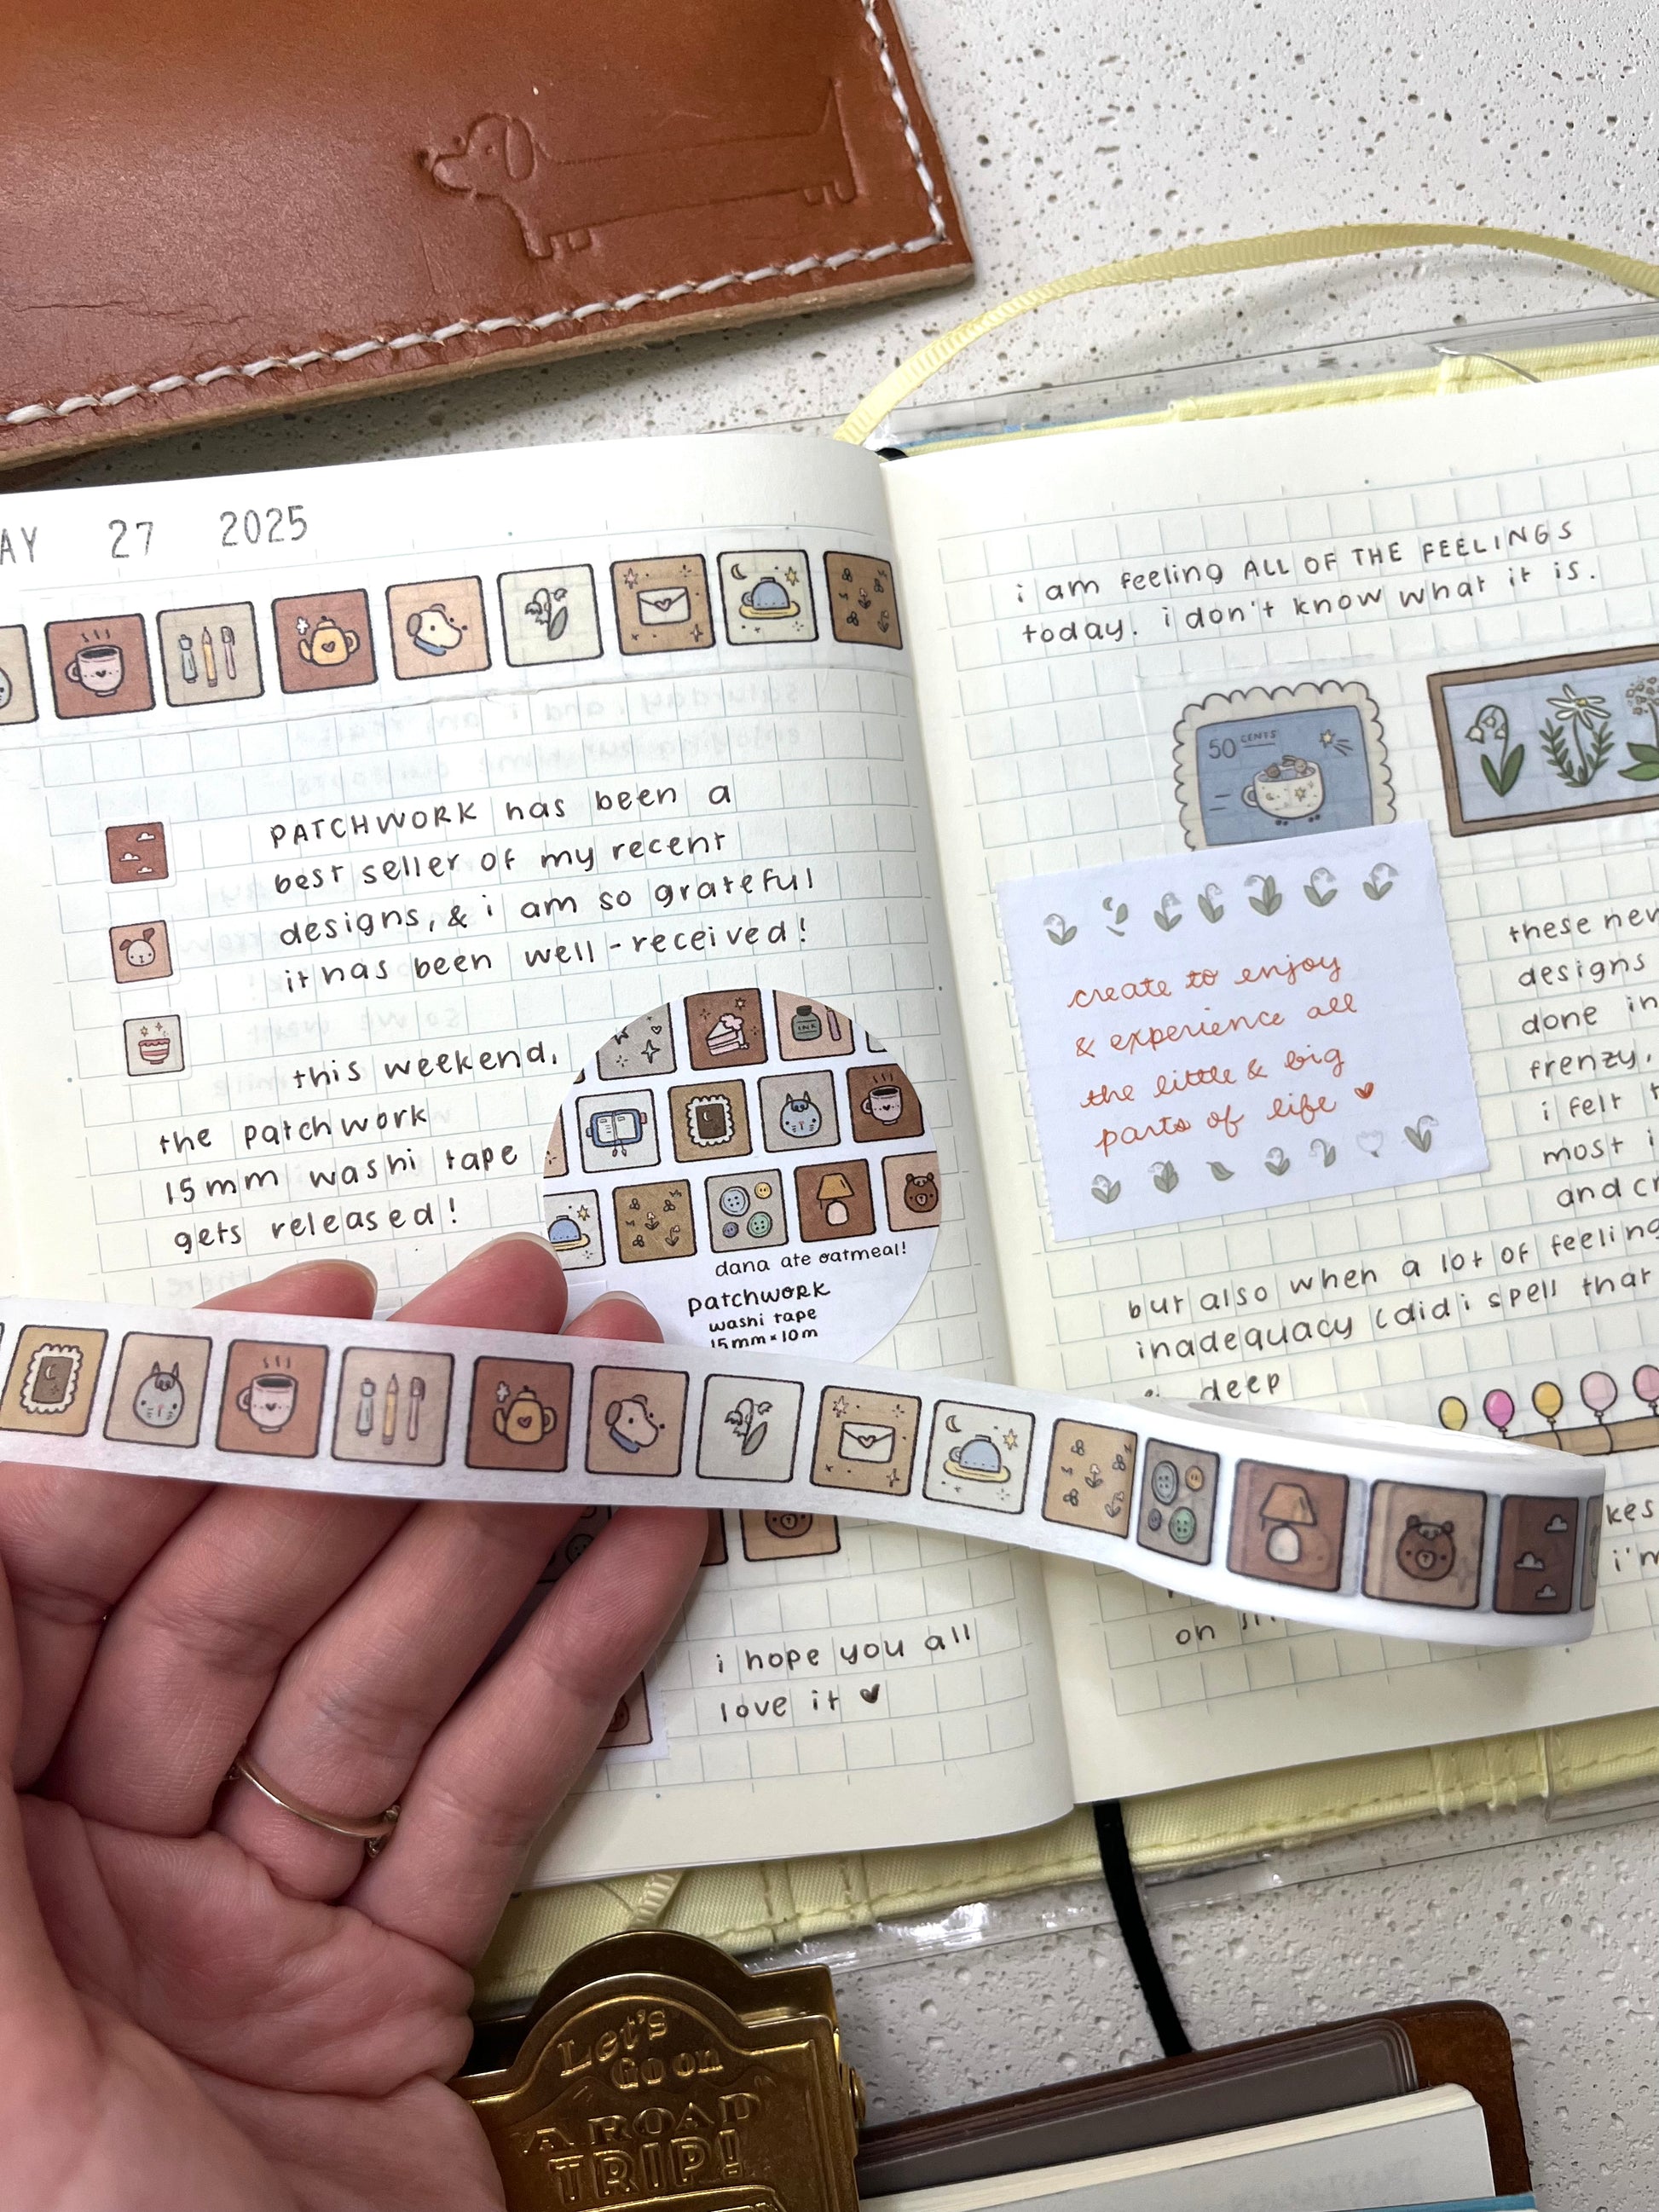 27 2025
PATCHWORK has been a
best seller of my recent
designs, & i am so grateful
it has been well-received!
this weekend,
the patchwork
15mm washi tape
gets released!
INK
dana ate oatmeal!
patchwork
washi tape
15mm x 10m
i hope you all
love it
i am feeling ALL OF THE FEELINGS
today. i don't know what it is.
50 CENTS
create to enjoy
& experience all
the little & big
parts of life
these new
designs
done in
frenzy,
i felt
most
and
but also when a lot of feeling
inadequacy (did i spell that
deep
i'm
on
Let's
Go on
A ROAD
TRIP!